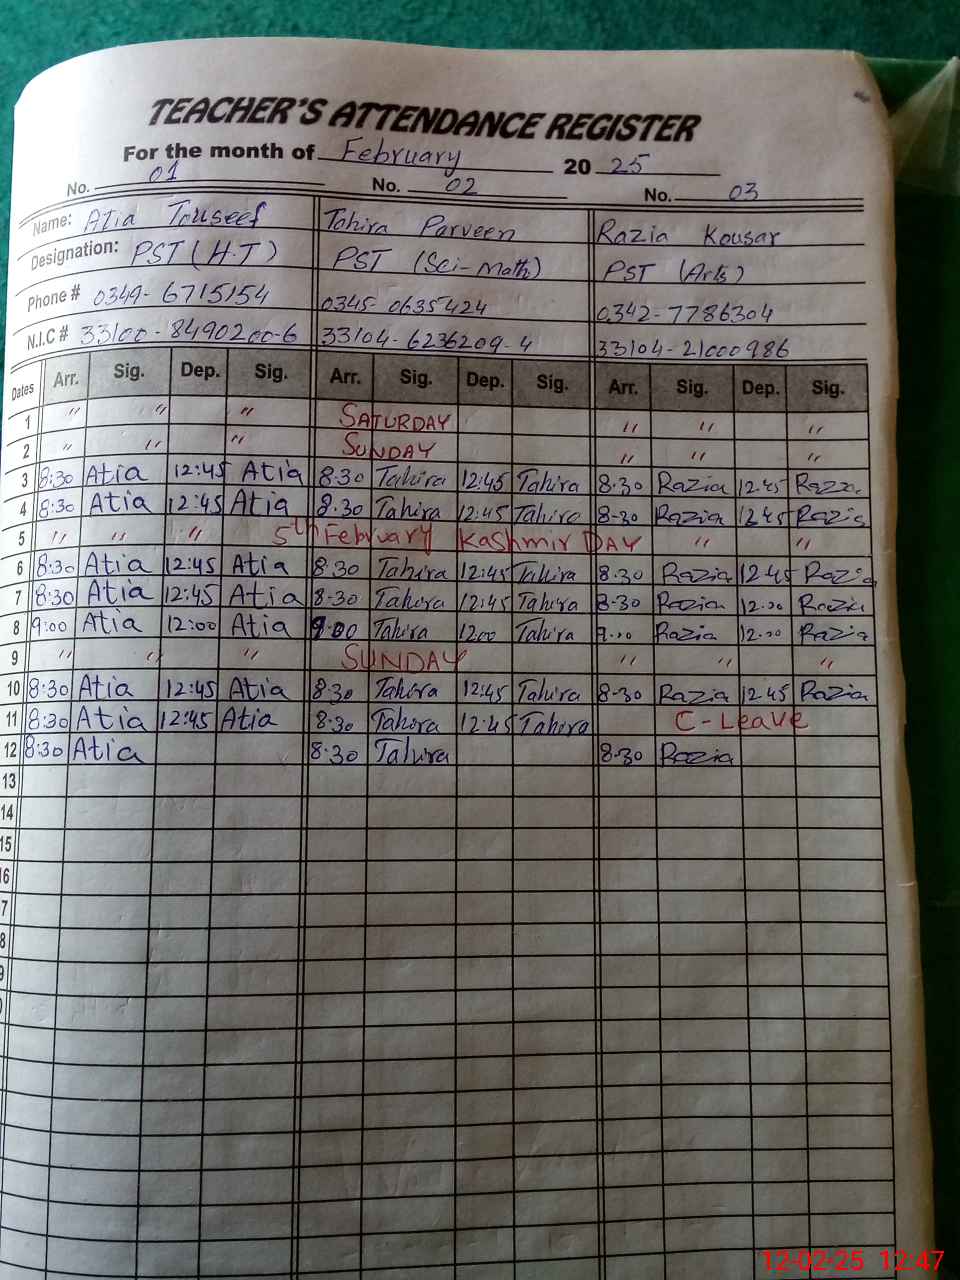 TEACHER'S ATTENDANCE REGISTER
For the month of February 2025
No. 01 No. 02 No. 03
Name: Atia Touseef Tahira Parveen Razia Kousar
Designation: PST (H.T) PST (Sci-Math) PST (Arts)
Phone # 0349-6715154 0345-0635424 0342-7786304
N.I.C # 33100-8490200-6 33104-6236209-4 33104-21000986
Dates Arr. Sig. Dep. Sig. Arr. Sig. Dep. Sig. Arr. Sig. Dep. Sig.
1 〃 〃 〃 SATURDAY 〃 〃 〃
2 〃 〃 〃 SUNDAY 〃 〃 〃
3 8:30 Atia 12:45 Atia 8:30 Tahira 12:45 Tahira 8-30 Razia 12:45 Razia
4 8:30 Atia 12:45 Atia 8:30 Tahira 12:45 Tahira 8-30 Razia 12:45 Razia
5 〃 〃 〃 5th February Kashmir DAY 〃 〃
6 8:30 Atia 12:45 Atia 8:30 Tahira 12:45 Tahira 8.30 Razia 12:45 Razia
7 8:30 Atia 12:45 Atia 8-30 Tahira 12:45 Tahira 8-30 Razia 12.00 Razia
8 9:00 Atia 12:00 Atia 9:00 Tahira 12:00 Tahira 9.00 Razia 12.00 Razia
9 〃 〃 〃 SUNDAY 〃 〃 〃
10 8:30 Atia 12:45 Atia 8:30 Tahira 12:45 Tahira 8-30 Razia 12:45 Razia
11 8:30 Atia 12:45 Atia 8:30 Tahira 12:45 Tahira C-Leave
12 8:30 Atia 8:30 Tahira 8-30 Razia
13
14
15
16
7
8
9
0
12-02-25 12:47